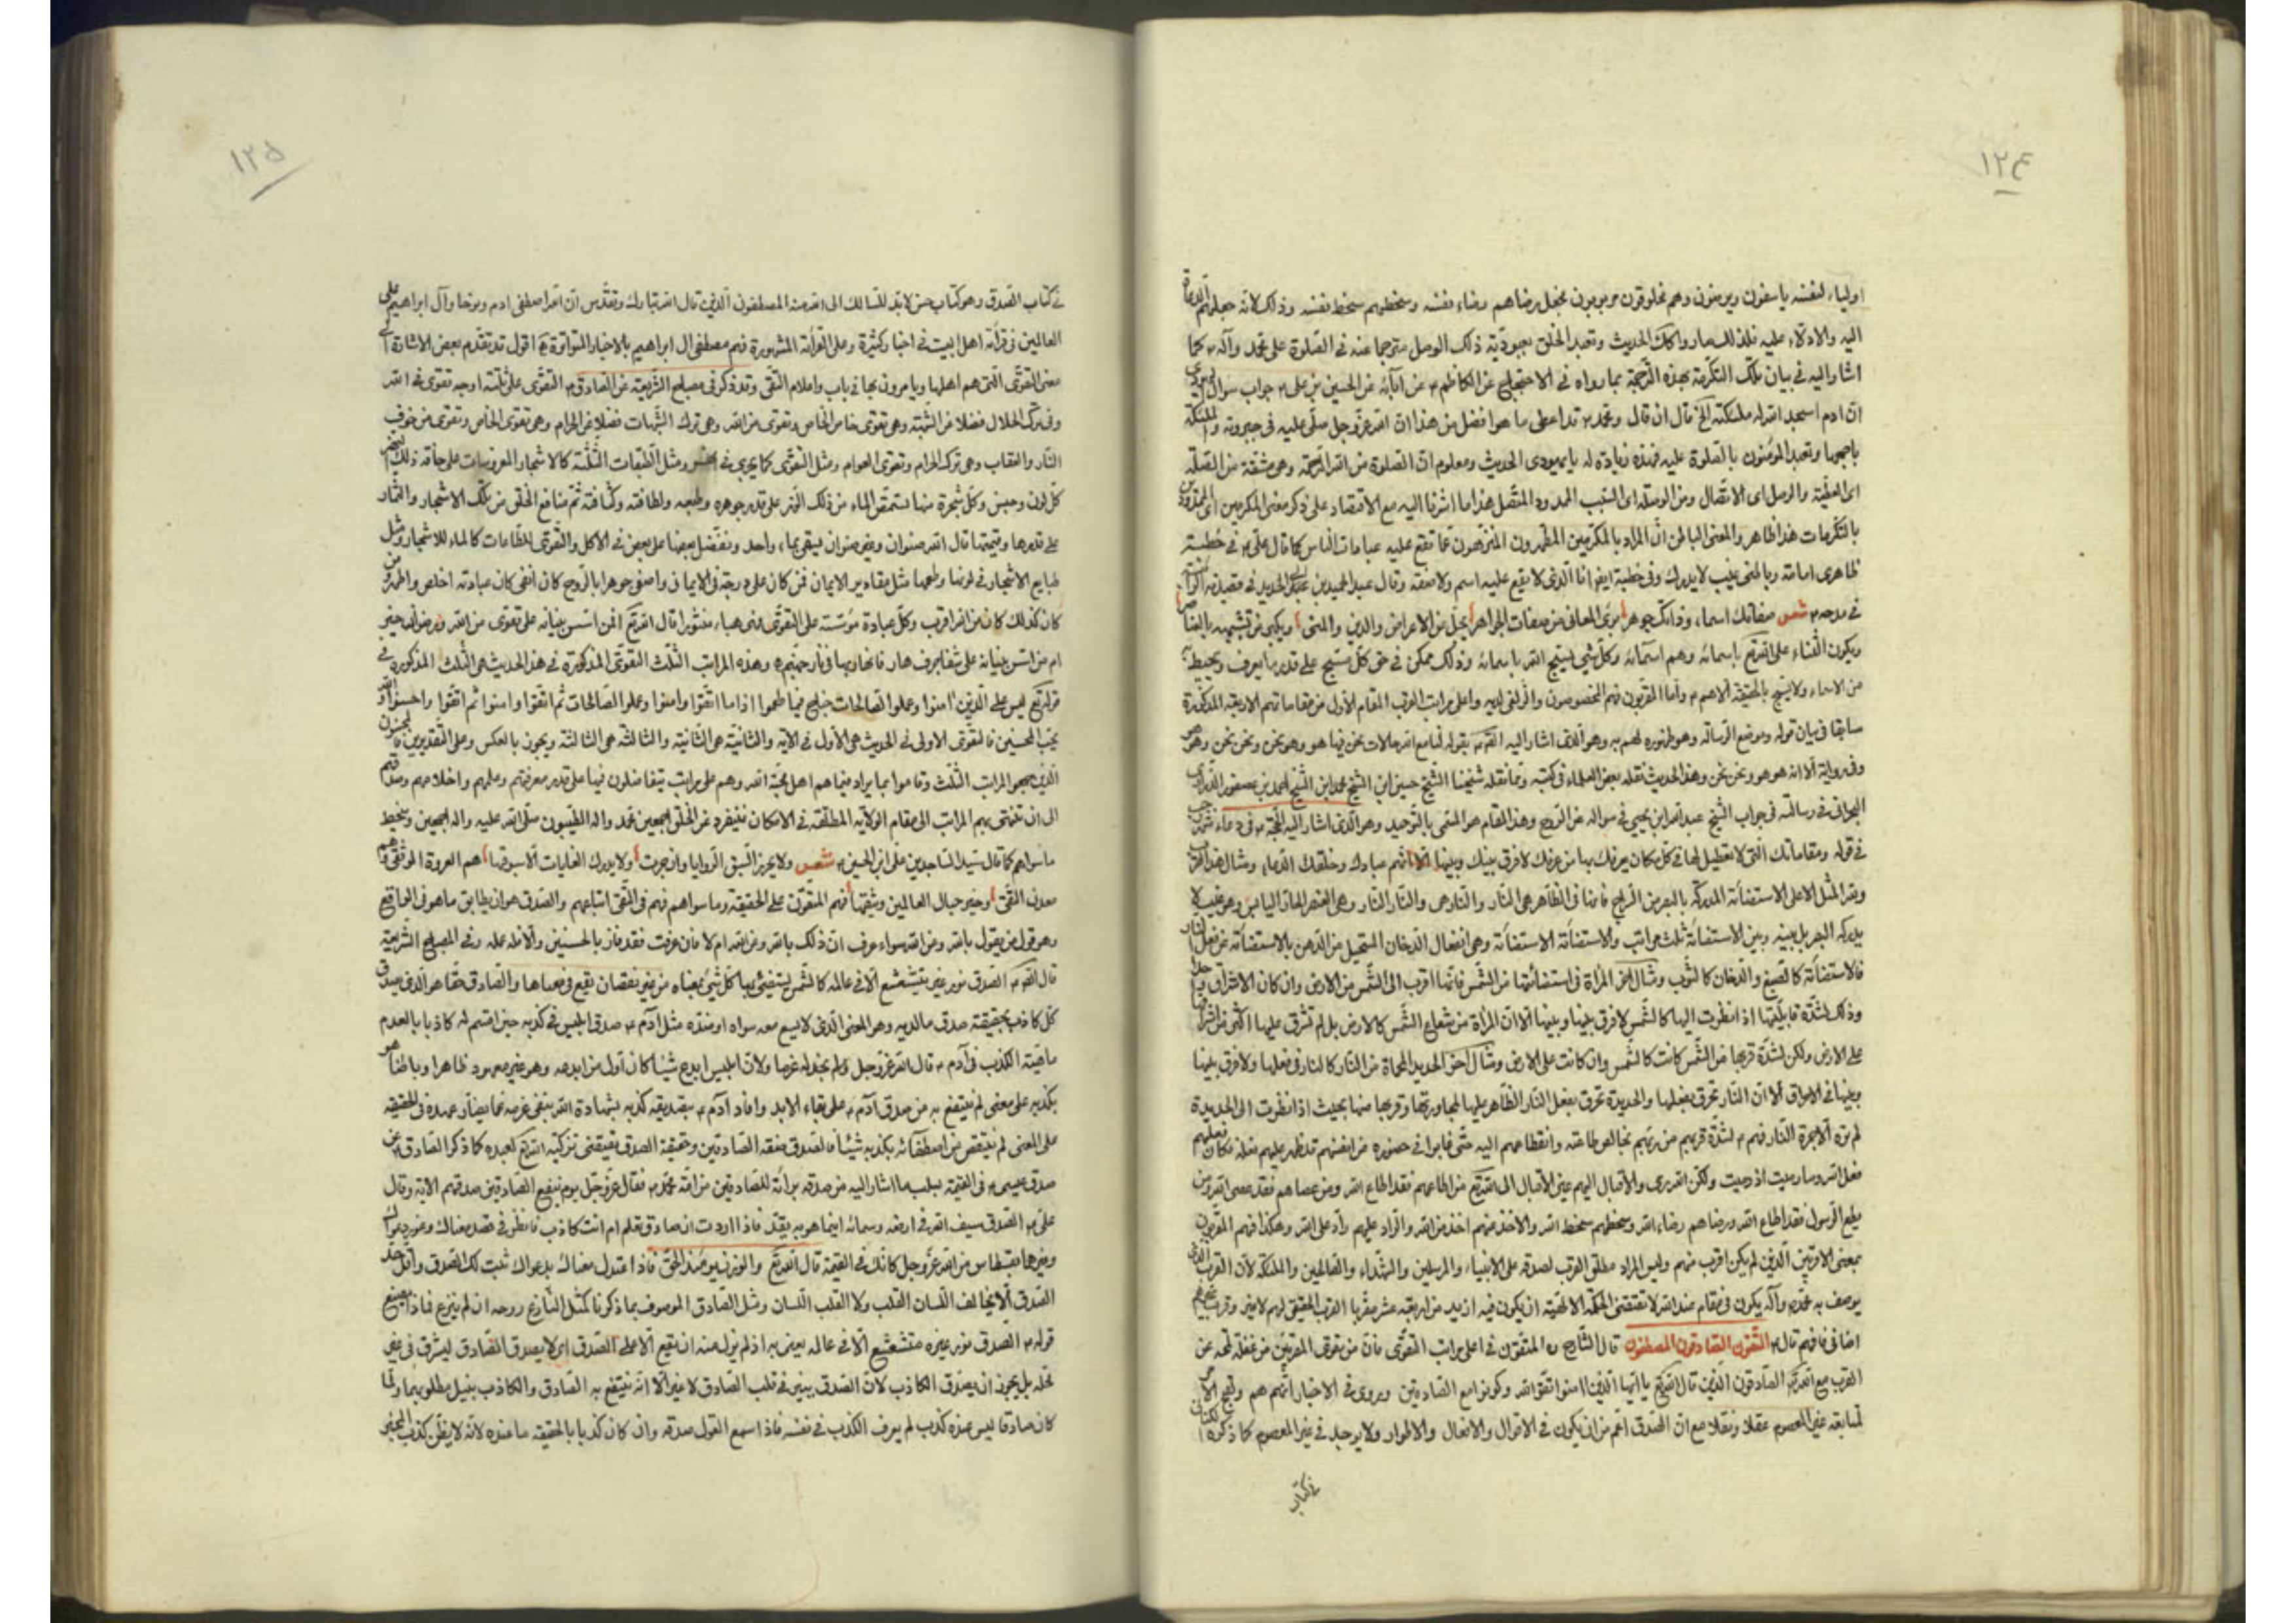 ١٢٤
اولياء لنفسه ياسفون ويرضون وهم مخلوقون مربوبون فجعل رضاهم رضاء نفسه وسخطهم سخط نفسه وذلك لانه جعلهم الدعاة
اليه والادلاء عليه فلذلك صاروا كك الحديث وتعبد الخلق بعبوديته ذلك الوصل مترجما عنه في الصلوة على محمد وآله ص كما
اشار اليه في بيان تلك التكرمة بهذه الترجمة بما رواه في الاحتجاج عن الكاظم ع عن آبائه عن الحسين بن علي ع جواب سوال اليهودي
ان ادم اسجد الله له ملئكته الخ قال ان قال ومحمد ص قد اعطى ما هو افضل من هذا ان الله عز وجل صلى عليه في جبروته والملئكة
باجمعها وتعبد المؤمنون بالصلوة عليه فهذه زيادة له يا يهودى الحديث ومعلوم ان الصلوة من الله الرحمة وهي مشتقة من الصلة
اى العطية والوصل اى الاتصال ومن الوسلة اى السبب الممدود المتصل هذا ما اشرنا اليه مع الاقتصاد على ذكر معنى المكرمين اى الممدوحين
بالتكرمات هذا ظاهر والمعنى الباطن ان المراد بالمكرمين المطهرون المنزهون عما تقع عليه عبارات الناس كما قال علي ع في خطبة
ظاهرى امامة وباطنى غيب لا يدرك وفي خطبة ايضا انا الذى لا يقع عليه اسم ولا صفة وقال عبد الحميد بن ابي الحديد في قصيدته
في مدحه ع شعر صفاتك اسماء وذاتك جوهر برئ المعانى من صفات الجواهر يجل عن الاعراض والاين والمتى ويكبر عن تشبيهه بالعناصر
ويكون الثناء على الله تع باسمائه وهم اسمائه وكل شي يسبح الله باسمائه وذلك ممكن في حق كل مسبح على قدر ما يعرف ويحيط
من الاسماء ولا يسبح بالحقيقة الا هم ع واما المقربون فهم المخصوصون والزلفى لديه واعلى مراتب القرب المقام الاول من مقاماتهم الاربعة المذكورة
سابقا في بيان قوله وموضع الرسالة وهو ظهوره لهم به وهو الذى اشار اليه الصادق ع بقوله لنا مع الله حالات نحن فيها هو وهو نحن ونحن نحن وهو هو
وفي رواية الا انه هو هو ونحن نحن وهذا الحديث نقله بعض العلماء في كتبه وممن نقله شيخنا الشيخ حسين ابن الشيخ محمد ابن الشيخ احمد بن عصفور الدرازي
البحرانى في رسالته في جواب الشيخ عبد الله ابن يحيى في سواله عن الروح وهذا المقام هو المسمى بالتوحيد وهو الذى اشار اليه الحجة ع في دعاء شهر رجب
في قوله ومقاماتك التى لا تعطيل لها في كل مكان يعرفك بها من عرفك لا فرق بينك وبينها الا انهم عبادك وخلقك الدعاء ومثال هذا القرب
ولله المثل الاعلى الاستضائة المدركة بالبصر من السراج فانها في الظاهر هي النار والنار هى والنار النار وهى العنصر الحار اليابس وهو غيب لا
يدركه البصر بل بينه وبين الاستضائة ثلث مراتب والاستضائة الاستضائة وهى انفعال الدخان المستحيل من الدهن بالاستضائة عن فعل النار
فالاستضائة كالصبغ والدخان كالثوب ومثال اخر المرأة في استضائتها من الشمس فانها اقرب الى الشمس من الارض وان كان الاشراق واحدا
وذلك لشدة قابليتها اذا نظرت اليها كالشمس لا فرق بينها وبينها الا ان المرأة من شعاع الشمس كالارض بل لم تشرق عليها اكثر من اشراقها
على الارض ولكن لشدة قربها من الشمس كانت كالشمس وان كانت على الارض ومثال اخر الحديدة المحماة من النار كالنار في فعلها ولا فرق بينها
وبينها في الاحراق الا ان النار تحرق بفعلها والحديدة تحرق بفعل النار الظاهر عليها لمجاورتها وقربها منها بحيث اذا نظرت الى الحديدة
لم تره الا حمرة النار فهم ع لشدة قربهم من ربهم بخالص طاعته وانقطاعهم اليه حتى غابوا في حضوره عن انفسهم قد ظهر عليهم فعله فكان فعلهم
فعل الله وما رميت اذ رميت ولكن الله رمى والاقبال اليهم عين الاقبال الى الله تع من اطاعهم فقد اطاع الله ومن عصاهم فقد عصى الله ومن
يطع الرسول فقد اطاع الله ورضاهم رضاء الله وسخطهم سخط الله والاخذ عنهم اخذ من الله والراد عليهم راد على الله وهكذا فهم المقربون
بمعنى الاقربين الذين لم يكن اقرب منهم وليس المراد مطلق القرب لصدقه على الانبياء والمرسلين والشهداء والصالحين والملئكة لان القرب الذى
يوصف به محمد وآله يكون في مقام عند الله لا تقتضى الحكمة الالهية ان يكون فيه ازيد من اربعة عشر مقربا القرب الحقيقى لهم لا غير وقرب غيرهم
اضافى فافهم قال ع المتقون الصادقون المصطفون قال الشارح ره المتقون في اعلى مراتب التقوى فان من تقوى المقربين من غفلة لمحة عن
القرب مع الله تع الصادقون الذين قال الله تع يا ايها الذين امنوا اتقوا الله وكونوا مع الصادقين وروى في الاخبار انهم هم
لمتابعة غير المعصوم عقلا ونقلا مع ان الصدق اعم من ان يكون في الاقوال والافعال والاطوار ولا يوجد في غير المعصوم كما ذكره
في كتاب
١٢٥
في كتاب الصدق وهو كتاب حسن لابد للسالك الى الله منه المصطفون الذين قال الله تبارك وتقدس ان الله اصطفى ادم ونوحا وآل ابراهيم على
العالمين في قرائة اهل البيت في اخبار كثيرة وعلى القرائة المشهورة فهم مصطفى ال ابراهيم بالاخبار المتواترة اقول قد تقدم بعض الاشارة الى
معنى التقوى التى هم اهلها ويامرون بها في باب واعلام التقى وقد ذكر في مصباح الشريعة عن الصادق ع التقوى على ثلثة اوجه تقوى في الله
وهى ترك الحلال فضلا عن الشبهة وهى تقوى خاص الخاص وتقوى من الله وهى ترك الشبهات فضلا عن الحرام وهى تقوى الخاص وتقوى من خوف
النار والعقاب وهى ترك الحرام وتقوى العوام ومثل التقوى كماء يجرى في نهر ومثل الطبقات الثلثة كالاشجار المغروسات على حافة ذلك النهر
كل لون وجنس وكل شجرة منها تستمص الماء من ذلك النهر على قدر جوهره وطبعه ولطافته وكثافته ثم منافع الخلق من تلك الاشجار والثمار
على قدرها وقيمتها قال الله صنوان وغير صنوان يسقى بماء واحد ونفضل بعضها على بعض في الاكل والتقوى للطاعات كالماء للاشجار ومثل
طبايع الاشجار في لونها وطعمها مثل مقادير الايمان فمن كان على درجة في الايمان واصفى جوهرا بالروح كان اتقى كان عبادته اخلص واطهر ومن
كان كذلك كان من الله اقرب وكل عبادة مؤسسة على التقوى فهى هباء منثورا قال الله تع افمن اسس بنيانه على تقوى من الله ورضوان خير
ام من اسس بنيانه على شفا جرف هار فانهار به في نار جهنم وهذه المراتب الثلث التقوى المذكورة في هذا الحديث هى الثلث المذكورة في
قوله تع ليس على الذين امنوا وعملوا الصالحات جناح فيما طعموا اذا ما اتقوا وامنوا وعملوا الصالحات ثم اتقوا وامنوا ثم اتقوا واحسنوا والله
يحب المحسنين فالتقوى الاولى في الحديث هى الاول في الاية والثانية هى الثانية والثالثة هى الثالثة ويجوز بالعكس وعلى التقديرين فالمحسنون
الذين جمعوا المراتب الثلث وقاموا بما يراد فيها هم اهل محبة الله وهم على مراتب يتفاضلون فيها على قدر معرفتهم وعلمهم واخلاصهم وصدقهم
الى ان تنتهى بهم المراتب الى مقام الولاية المطلقة في الامكان فينفرد عن الخلق اجمعين محمد واله الطيبون صلى الله عليه واله اجمعين وينحط
ما سواهم كما قال سيد الساجدين على ابن الحسين ع شعر ولا يحرز السبق الروايا وان جرت ولا يدرك الغايات الا سبوقها هم العروة الوثقى وهم
معدن التقى وخير حبال العالمين وثيقها فهم المتقون على الحقيقة وما سواهم فهم في التقى اتباعهم والصدق هو ان يطابق ما هو في الواقع
وهو قول من يقول بالله ومن الله سواء عرف ان ذلك بالله ومن الله ام لا فان عرفت فقد فاز بالحسنيين والا فله عمله وفي المصباح الشريعة
قال الصادق ع الصدق نور غير متشعشع الا في عالمه كالشمس يستضيئ بها كل شيئ بمعناه من غير نقصان يقع في معناها والصادق حقا هو الذى يصدق
كل كاذب بحقيقة صدق ما لديه وهو المعنى الذى لا يسع معه سواه او ضده مثل ادم ع صدق ابليس في كذبه حين اقسم له كاذبا بالعدم
ماهية الكذب في آدم ع قال الله عز وجل ولم نجد له عزما ولان ابليس ابدع شيئا كان اول من ابدعه وهو غير معهود ظاهرا وباطنا
بكذبه على معنى لم ينتفع به من صدق آدم ع على بقاء الابد وافاد آدم ع بتصديقه كذبه بشهادة الله بنفى عزمه عما يضاد عهده في الحقيقة
على المعنى لم ينتقص من اصطفائه بكذبه شيئا فالصدق صفة الصادقين وحقيقة الصدق تقتضى تزكية الله تع لعبده كما ذكر الصادق ع عن
صدق عيسى ع في القيمة بسبب ما اشار اليه من صدقه برائة للصادقين من امة محمد ص فقال عز وجل يوم ينفع الصادقين صدقهم الاية وقال
على ع الصدق سيف الله في ارضه وسمائه اينما هو به يقد فاذا اردت ان تعلم اصادق ام انت كاذب فانظر في قصد معناك وغور دعواك
وغيرها بقسطاس من الله عز وجل كانك في القيمة قال الله تع والوزن يومئذ الحق فاذا اعتدل معناك بدعواك ثبت لك الصدق واقل حد
الصدق الا يخالف اللسان القلب ولا القلب اللسان ومثل الصادق الموصوف بما ذكرنا كمثل النازع روحه ان لم ينزع فماذا يصنع
قوله ع الصدق نور غير متشعشع الا في عالمه يعنى به اذ لم يزل منه ان يقع الا على الصدق اى لا يصدق الصادق ليشرق في غير
محله بل يجوز ان يصدق الكاذب لان الصدق يبنى في قلب الصادق لا غير الا انه ينتفع به الصادق والكاذب بنيل مطلوبهما ولما
كان صادقا ليس عنده كذب لم يعرف الكذب في نفسه فاذا اسمع القول صدقه وان كان كذبا بالحقيقة ما عنده لانه لا يظن كذب المخبر